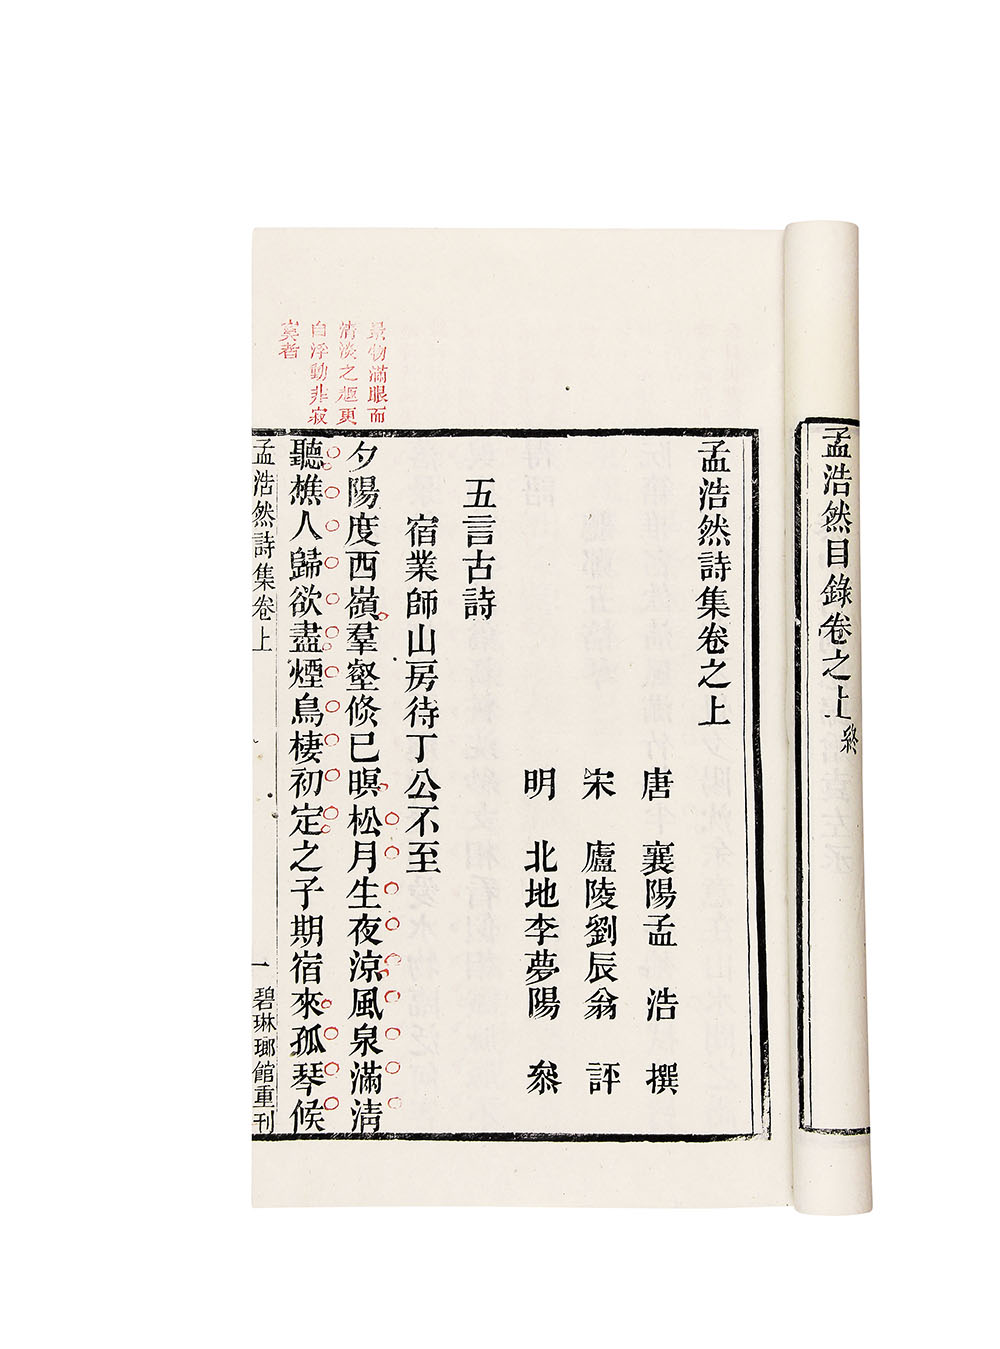 孟浩然目錄卷之上終
孟浩然詩集卷之上
唐 襄陽孟 浩 撰
宋 廬陵劉辰翁 評
明 北地李夢陽 叅
五言古詩
宿業師山房待丁公不至
夕陽度西嶺羣壑倐已暝松月生夜涼風泉滿清
聽樵人歸欲盡煙鳥棲初定之子期宿來孤琴候
景物滿眼而
清淡之趣更
自浮動非寂
寞者
孟浩然詩集卷上
一
碧琳瑯館重刊